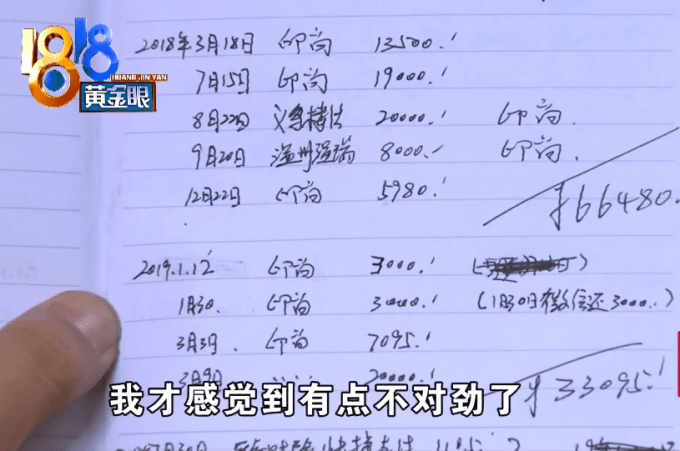 1818
HUANG JIN YAN
黄金眼
2018年3月18日 印尚 13500.
7月15日 印尚 19000.
8月22日 20000. 印尚.
9月20日 温州温瑞 8000. 印尚.
12月22日 印尚 5980.
¥66480.
2019.1.12 印尚 3000.
1月30. 印尚 3000. (1月30日微信还3000.)
3月3日. 印尚 7095.
3月9日 20000.
¥33095.
我才感觉到有点不对劲了